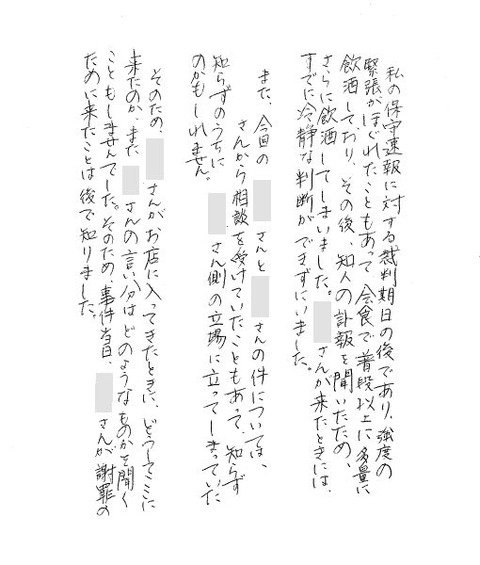 私の保守速報に対する裁判期日の後であり、強度の
緊張がほぐれたこともあって、会食で普段以上に多量に
飲酒しており、その後、知人の訃報を聞いたため、
さらに飲酒してしまいました。 さんが来たときには、
すでに冷静な判断ができずにいました。
また、今回の さんと さんの件については、
さんから相談を受けていたこともあって、知らず
知らずのうちに さん側の立場に立ってしまっていた
のかもしれません。
そのため、 さんがお店に入ってきたときに、どうしてここに
来たのか、また さんの言い分はどのようなものかを聞く
こともしませんでした。そのため事件当日、 さんが謝罪の
ために来たことは後で知りました。